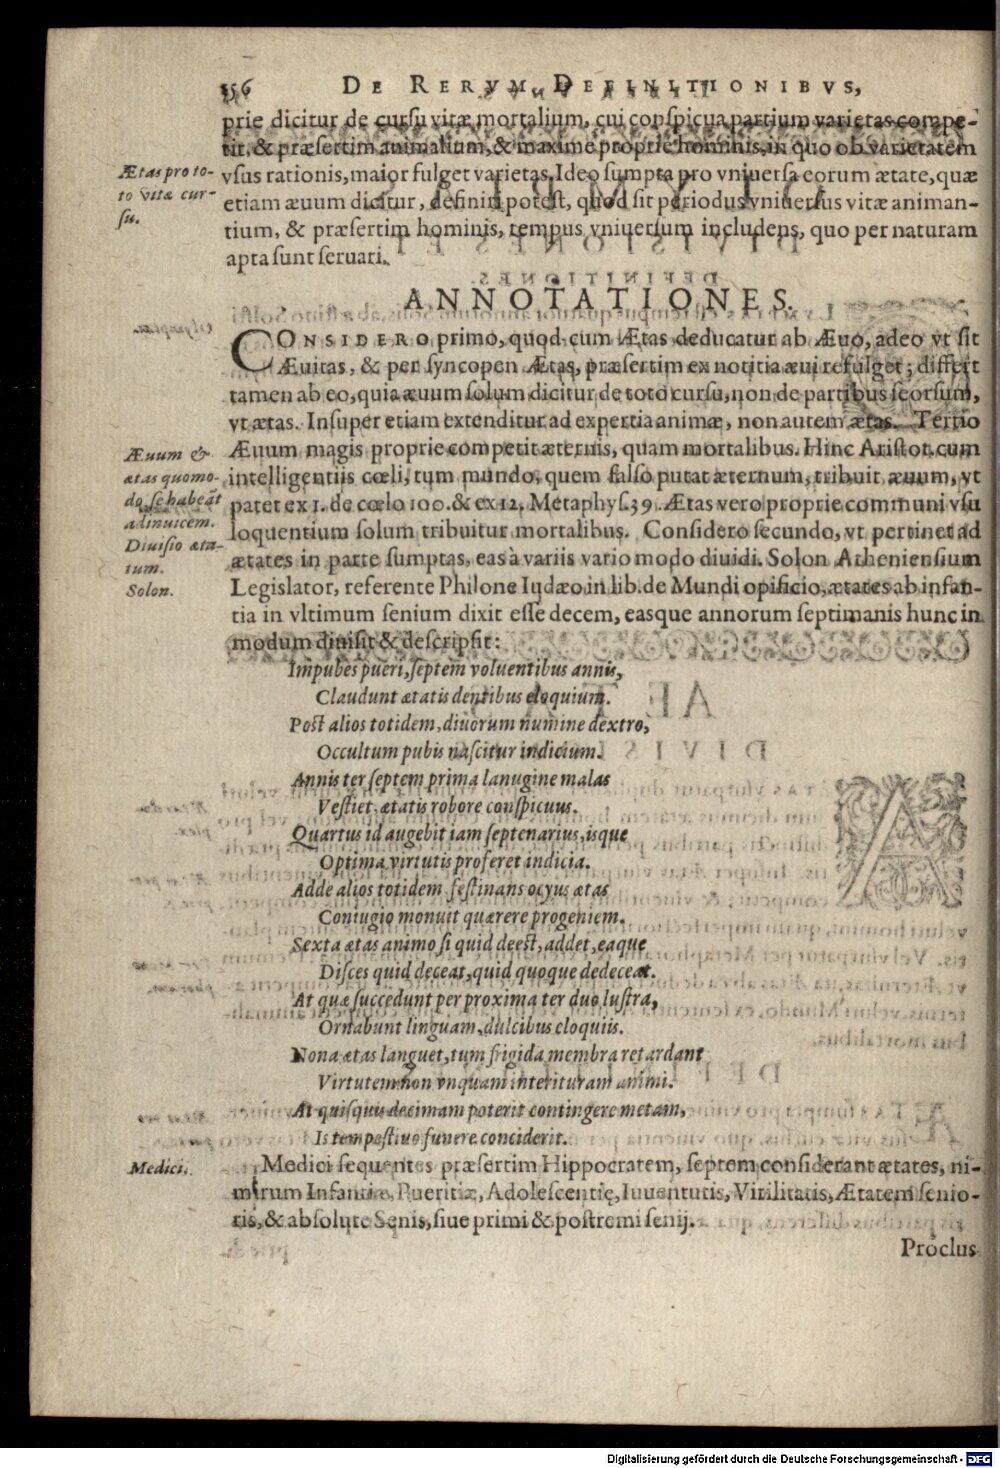 356 DE RERVM DEFINITIONIBVS,
prie dicitur de cursu vitæ mortalium, cui conspicua partium varietas compe-
tit, & præsertim animalium, & maxime proprie hominis, in quo ob varietatem
Ætas pro to-
to vitæ cur-
su.
vsus rationis, maior fulget varietas. Ideo sumpta pro vniuersa eorum ætate, quæ
etiam æuum dicitur, definiri potest, quod sit periodus vniuersus vitæ animan-
tium, & præsertim hominis, tempus vniuersum includens, quo per naturam
apta sunt seruari.
ANNOTATIONES.
CONSIDERO primo, quod cum Ætas deducatur ab Æuo, adeo vt sit
Æuitas, & per syncopen Ætas, præsertim ex notitia æui refulget; differt
tamen ab eo, quia æuum solum dicitur de toto cursu, non de partibus seorsum,
vt ætas. Insuper etiam extenditur ad expertia animæ, non autem ætas. Tertio
Æuum &
ætas quomo-
do se habeāt
adinuicem.
Diuisio æta-
tum.
Solon.
Æuum magis proprie competit æternis, quam mortalibus. Hinc Aristot. cum
intelligentiis cœli, tum mundo, quem falso putat æternum, tribuit æuum, vt
patet ex 1. de cœlo 100. & ex 12. Metaphys. 39. Ætas vero proprie communi vsu
loquentium solum tribuitur mortalibus. Considero secundo, vt pertinet ad
ætates in parte sumptas, eas à variis vario modo diuidi. Solon Atheniensium
Legislator, referente Philone Iudæo in lib. de Mundi opificio, ætates ab infan-
tia in vltimum senium dixit esse decem, easque annorum septimanis hunc in
modum diuisit & descripsit:
Impubes pueri, septem voluentibus annis,
Claudunt ætatis dentibus eloquium.
Post alios totidem, diuorum numine dextro,
Occultum pubis nascitur indicium.
Annis ter septem prima lanugine malas
Vestiet, ætatis robore conspicuus.
Quartus id augebit iam septenarius, isque
Optima virtutis proferet indicia.
Adde alios totidem, festinans ocyus ætas
Coniugio monuit quærere progeniem.
Sexta ætas animo si quid deest, addet, eaque
Disces quid deceat, quid quoque dedeceat.
At quæ succedunt per proxima ter duo lustra,
Ornabunt linguam, dulcibus eloquiis.
Nona ætas languet, tum frigida membra retardant
Virtutem non vnquam interituram animi.
At quisquis decimam poterit contingere metam,
Is tempestiuo funere conciderit.
Medici.
Medici sequentes præsertim Hippocratem, septem considerant ætates, ni-
mirum Infantiæ, Pueritiæ, Adolescentię, Iuuentutis, Virilitatis, Ætatem senio-
ris, & absolute Senis, siue primi & postremi senij.
Proclus
Digitalisierung gefördert durch die Deutsche Forschungsgemeinschaft - DFG